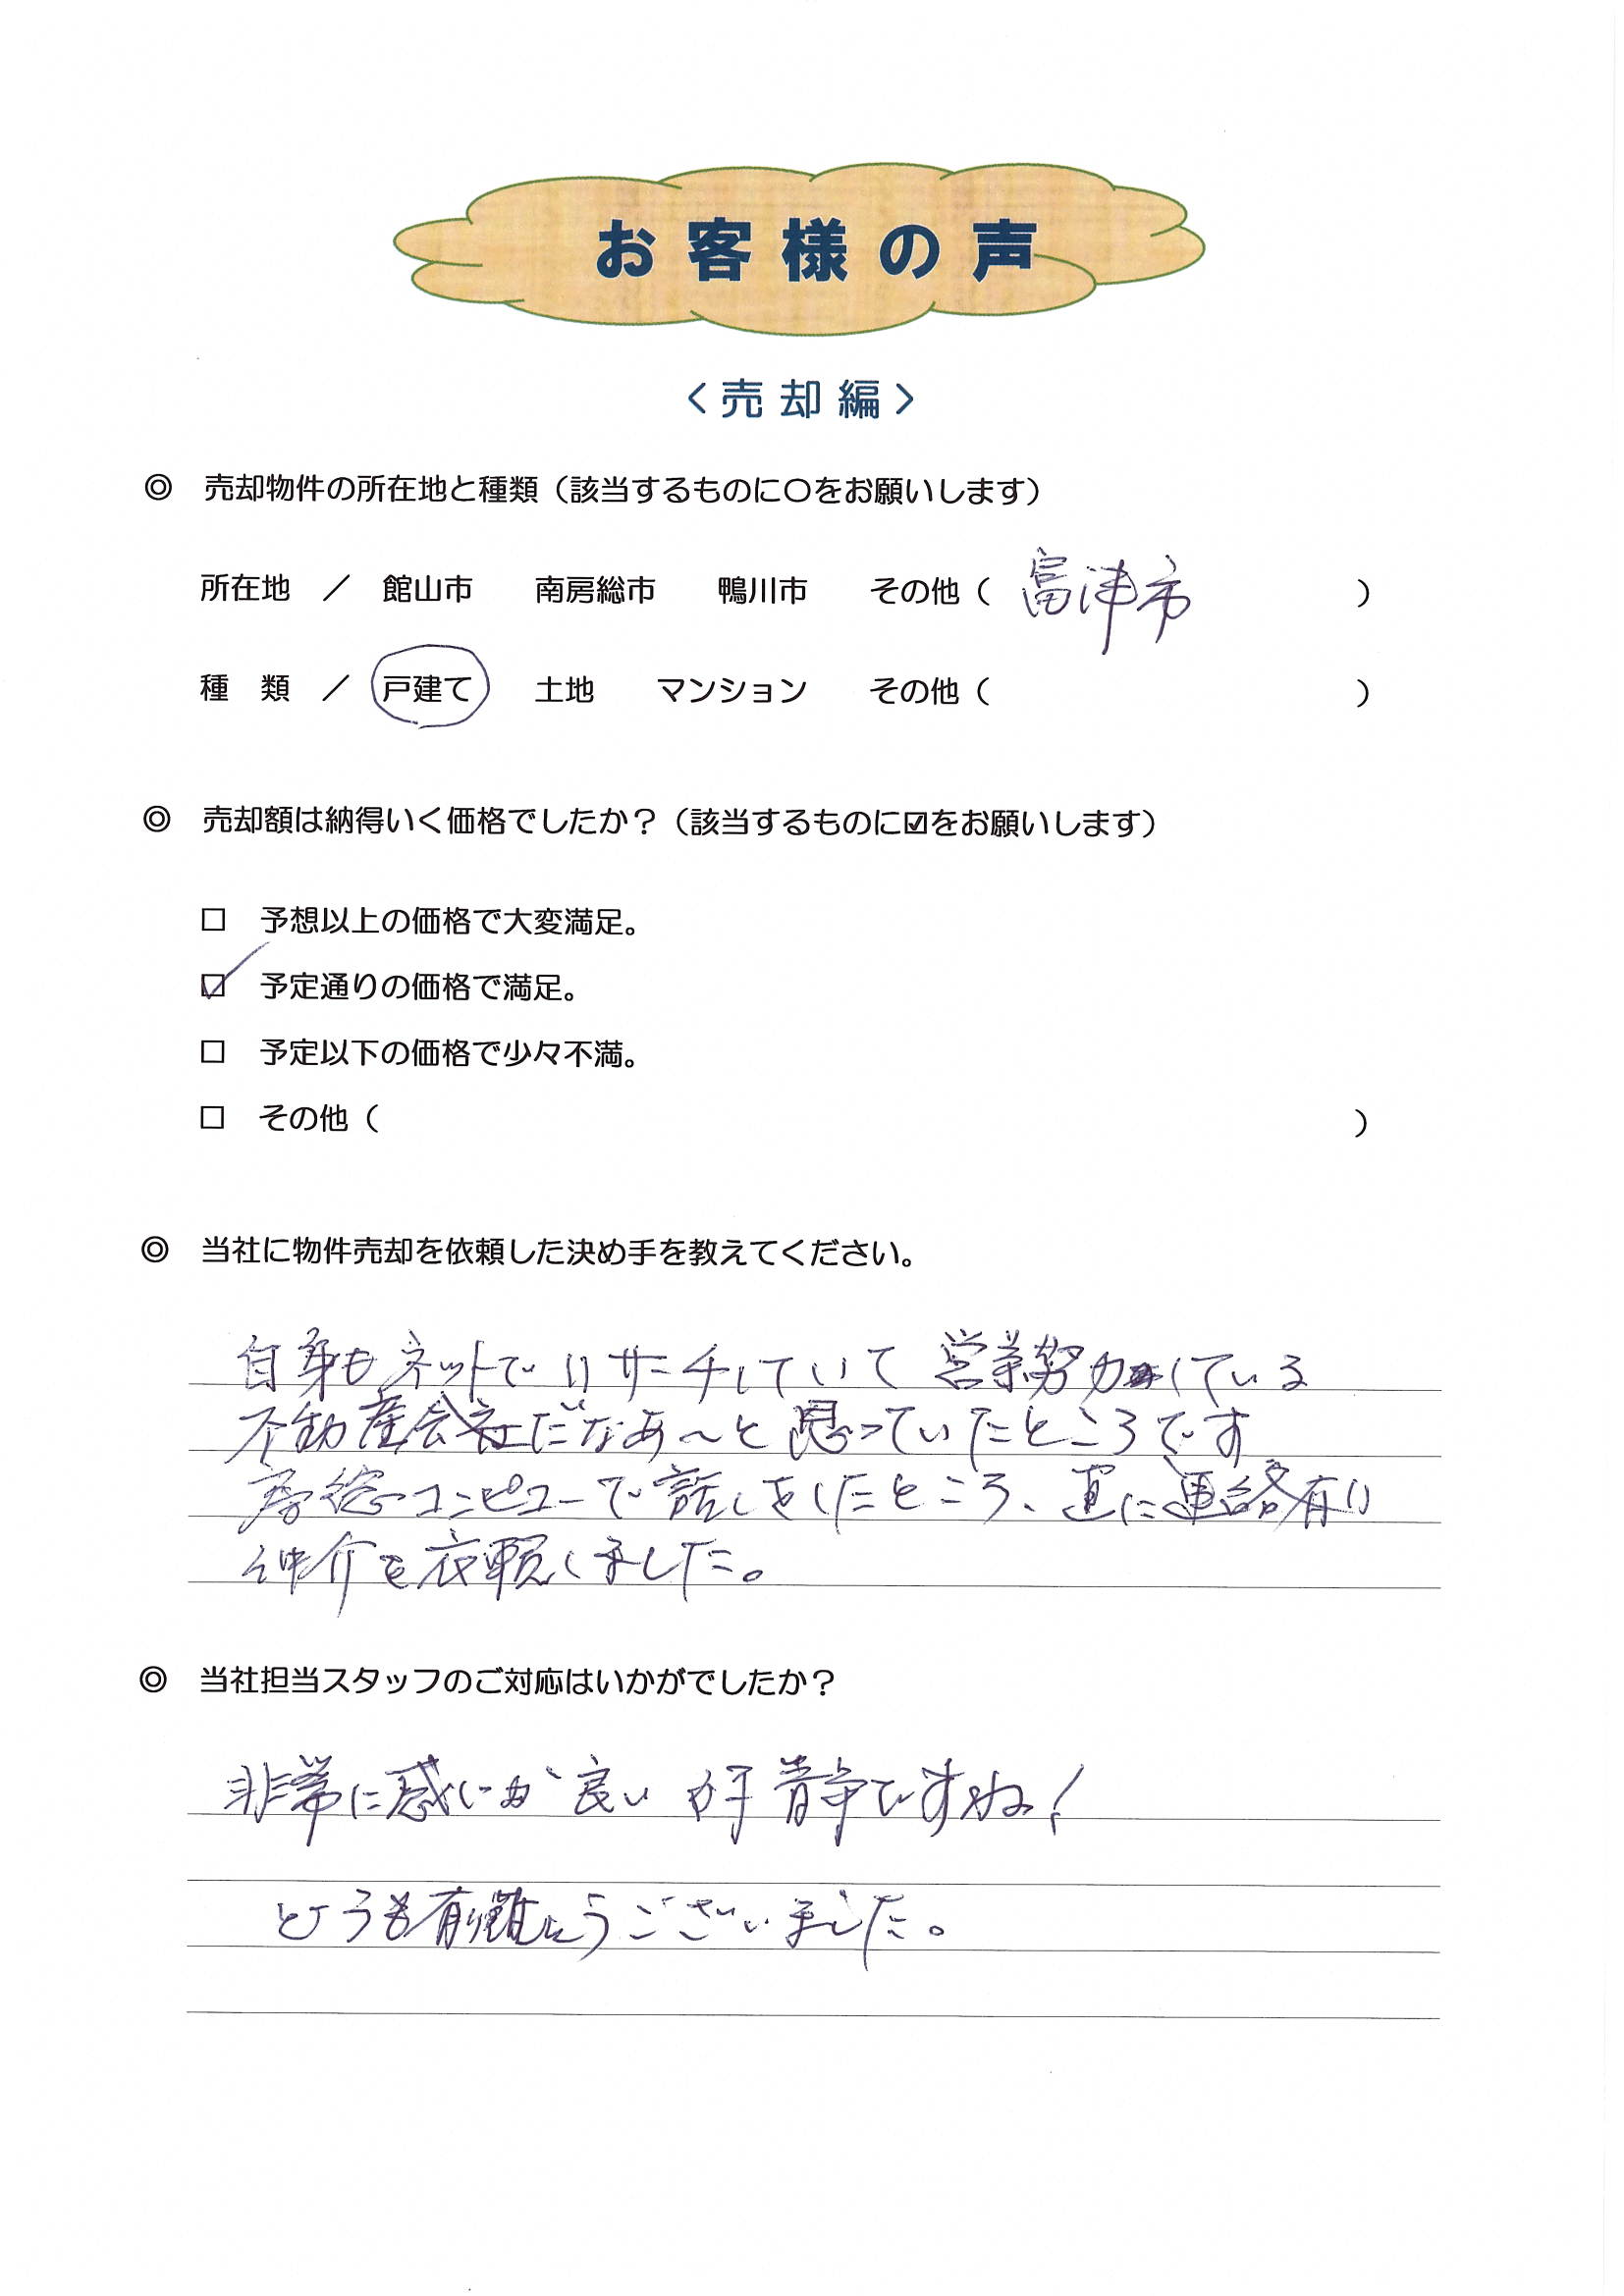 お客様の声
〈売却編〉
◎ 売却物件の所在地と種類（該当するものに○をお願いします）
所在地 ／ 館山市 南房総市 鴨川市 その他（ 富津市 ）
種 類 ／ 戸建て 土地 マンション その他（ ）
◎ 売却額は納得いく価格でしたか？（該当するものに☑をお願いします）
□ 予想以上の価格で大変満足。
☑ 予定通りの価格で満足。
□ 予定以下の価格で少々不満。
□ その他（ ）
◎ 当社に物件売却を依頼した決め手を教えてください。
自身もネットでリサーチしていて 営業努力している
不動産会社だなあ～と思っていたところです
房総コンピューで話しをしたところ、直に連絡有り
仲介を依頼しました。
◎ 当社担当スタッフのご対応はいかがでしたか？
非常に感じが良い 青年ですね！
どうも有難とうございました。